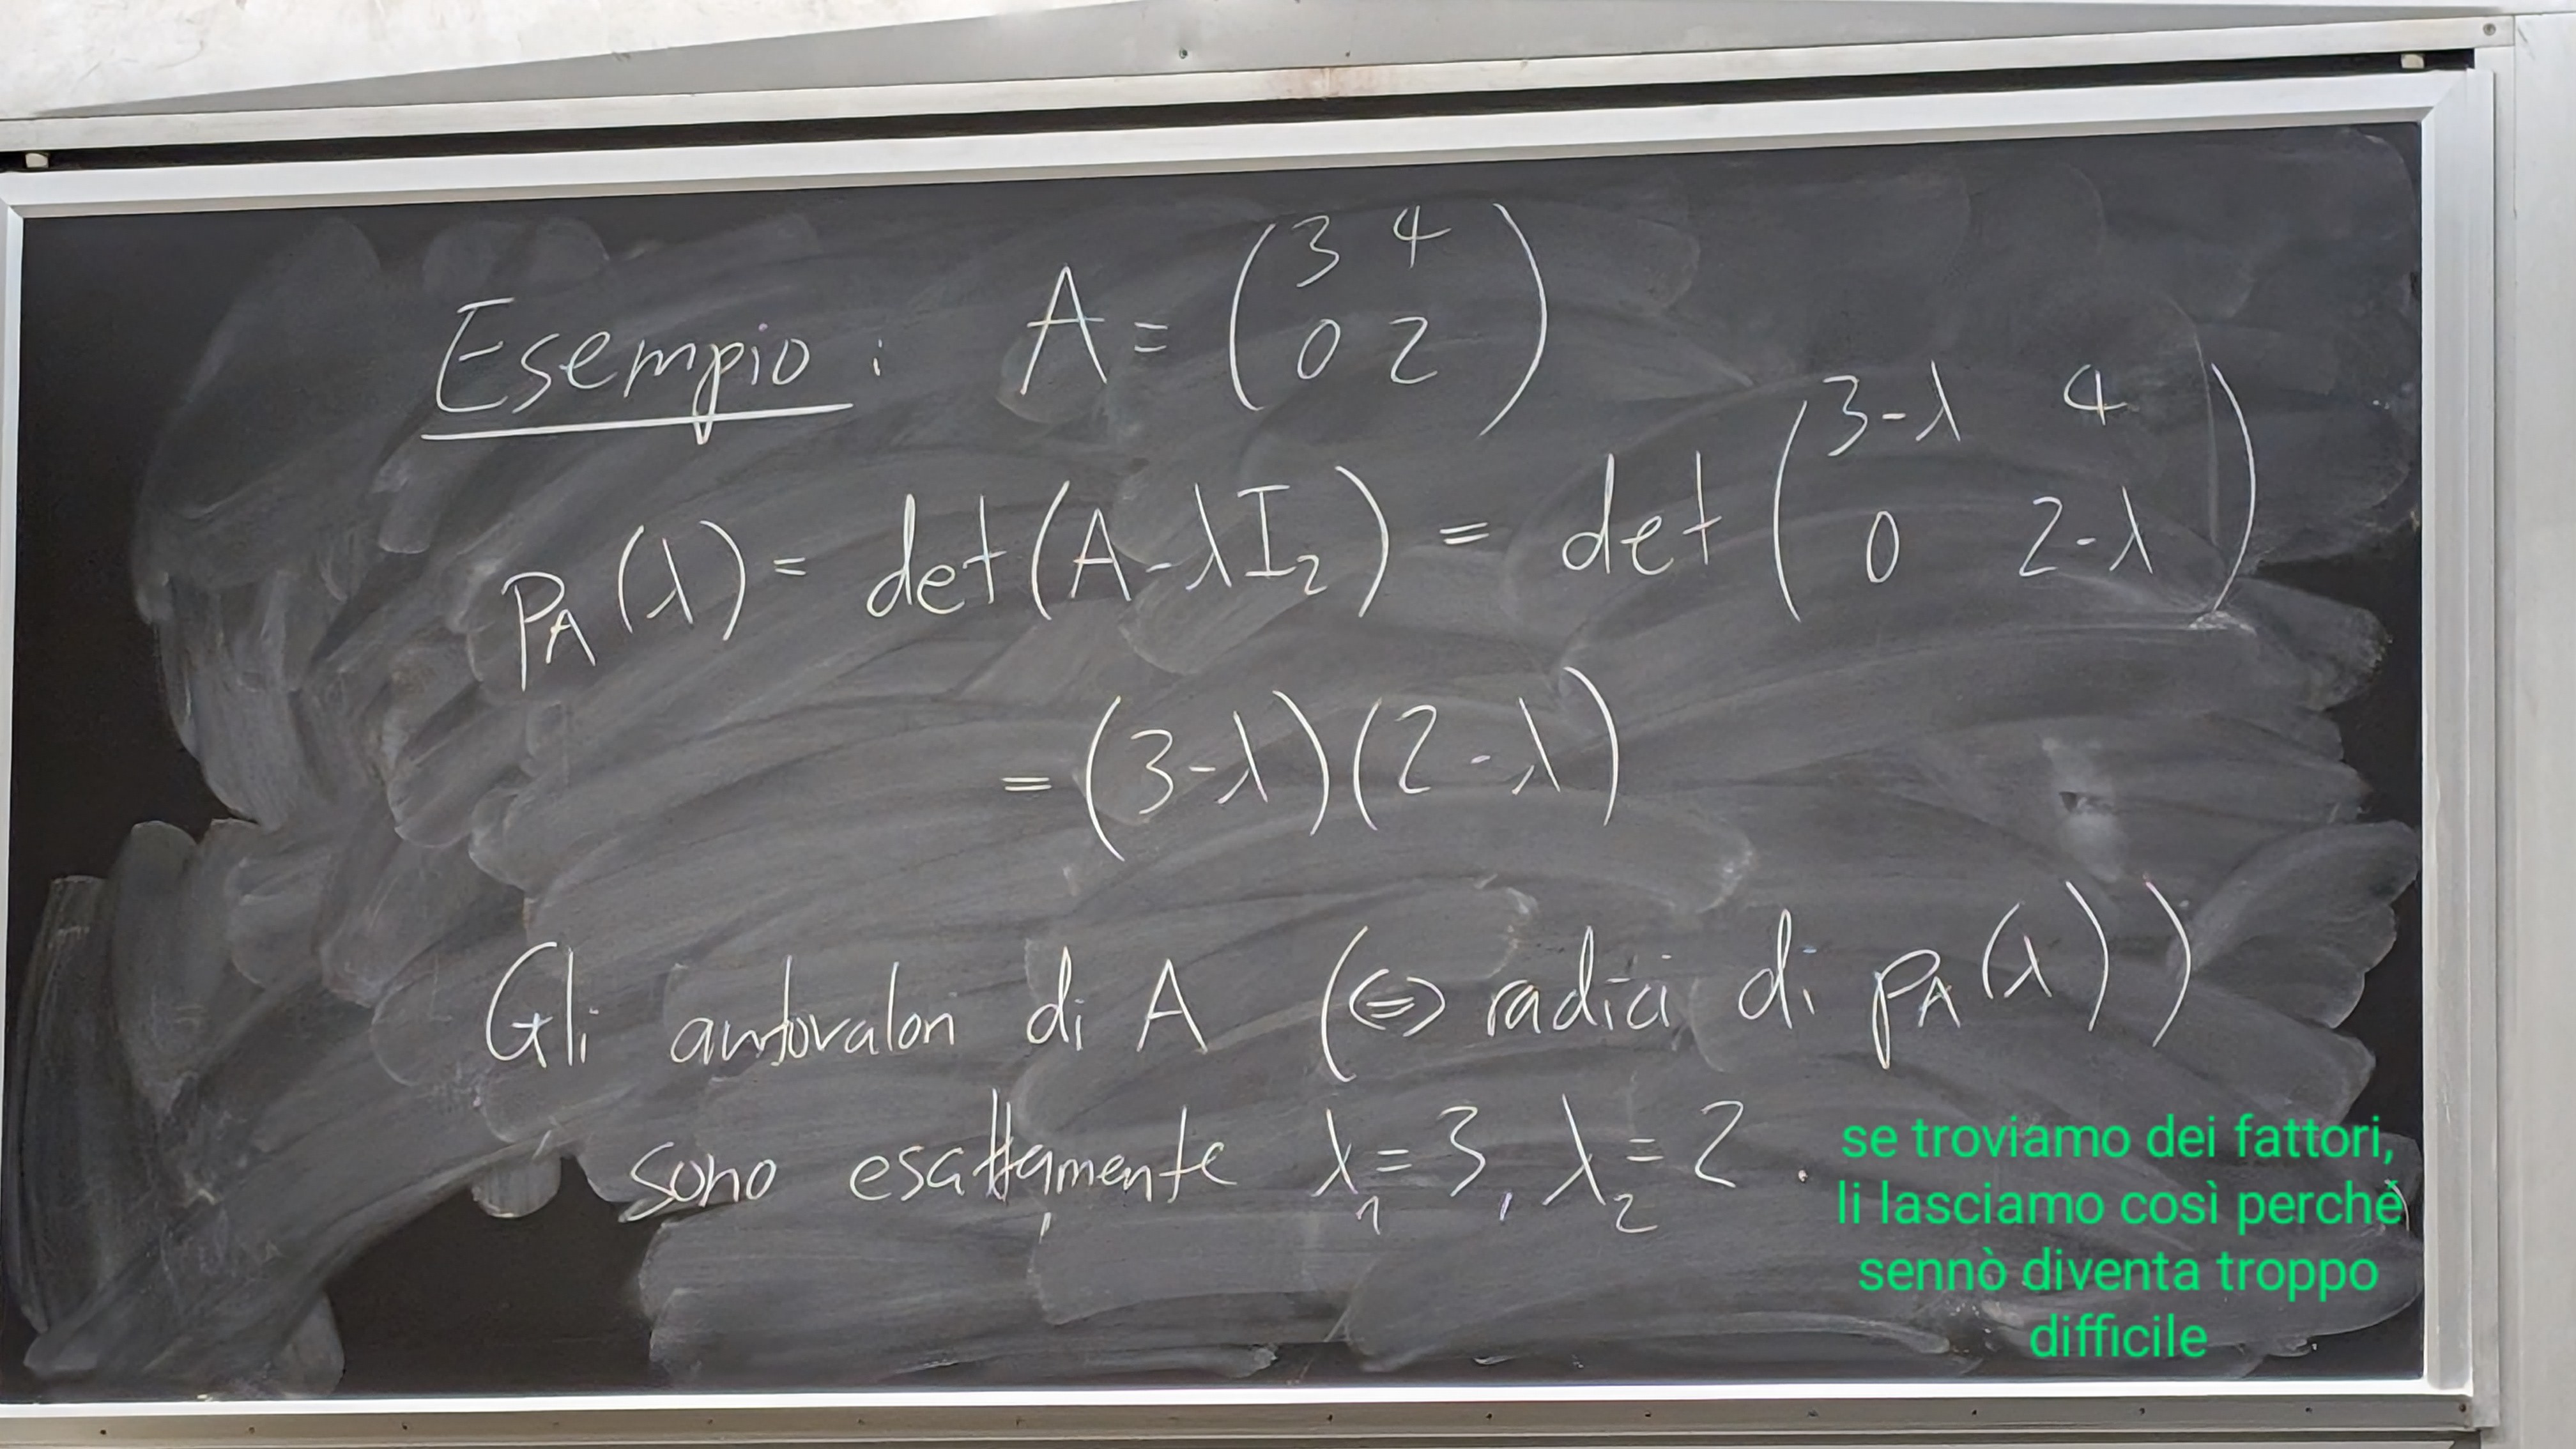 Esempio: A = (3 4
0 2)
p_A(λ) = det(A-λI₂) = det(3-λ 4
0 2-λ)
= (3-λ)(2-λ)
Gli autovalori di A (⇔ radici di p_A(λ))
sono esattamente λ₁=3, λ₂=2.
se troviamo dei fattori,
li lasciamo così perché
sennò diventa troppo
difficile